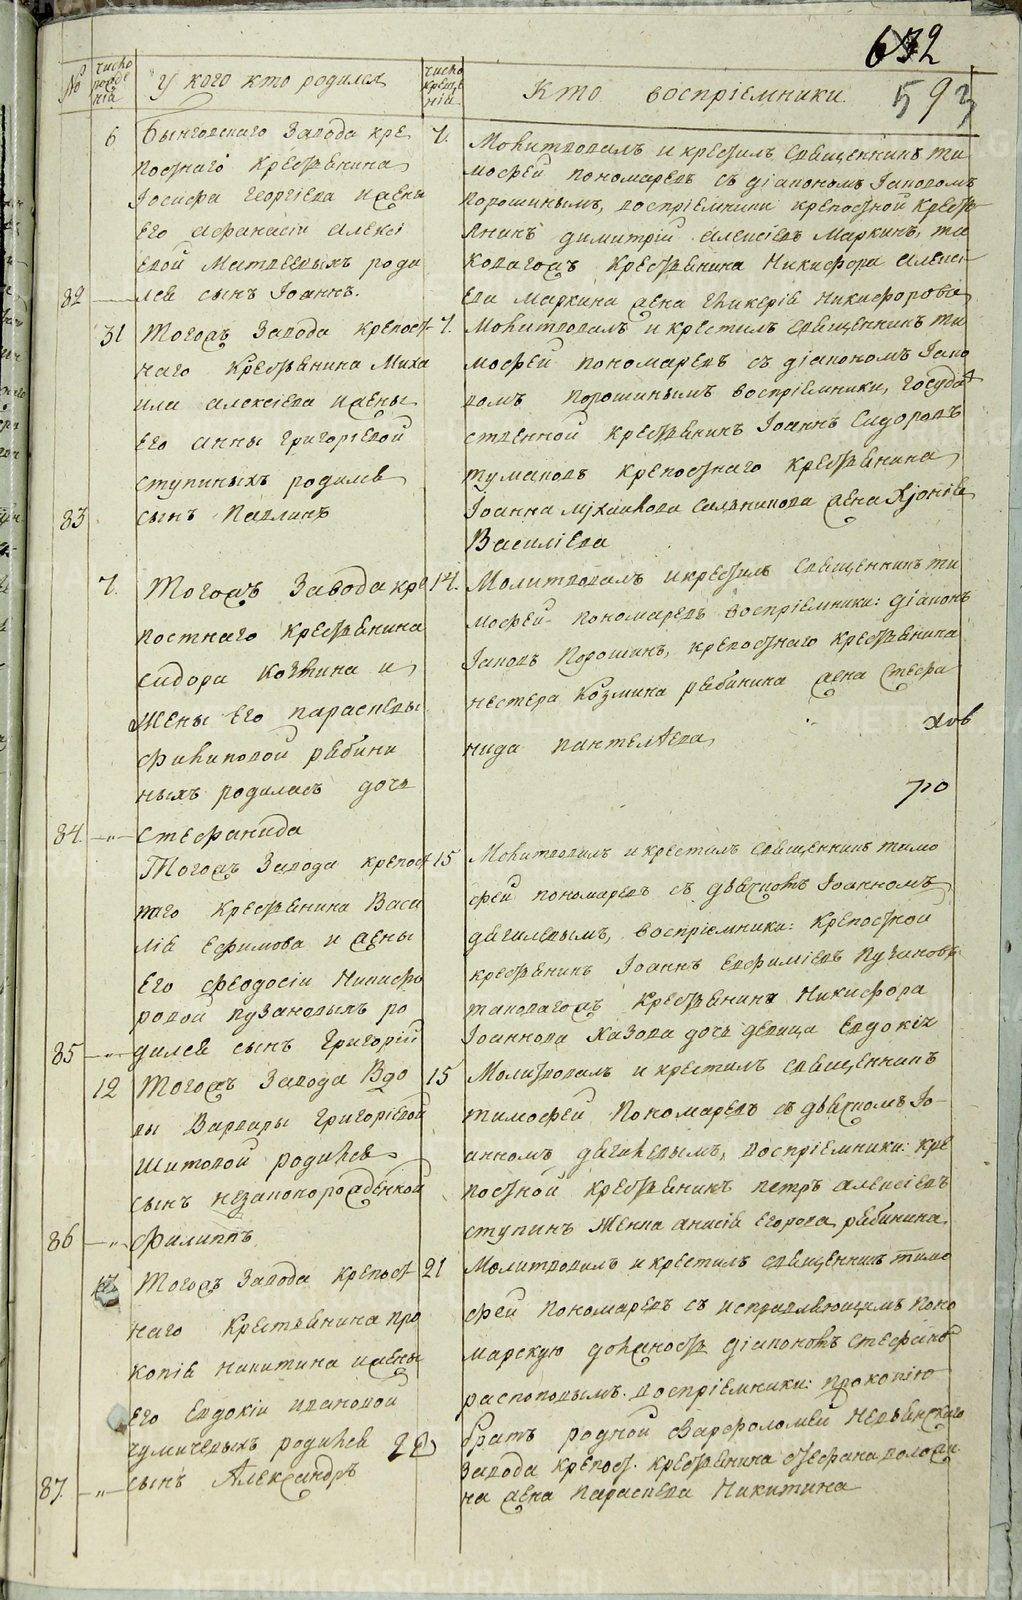 632
593
№
число рожде нiя
У кого кто родился
число креще нiя
Кто воспрiемники.
6
Бынговскаго Завода кре
постнаго крестьянина
Iосифа Георгiева и жены
его Афанасiи Алексi
евой Матвеевыхъ роди
82
лся сынъ Iоаннъ.
7.
Молитвовалъ и крестилъ священникъ ти
мофей пономаревъ съ дiакономъ Iаковомъ
порошинымъ, воспрiемники крепостной крестья
янинъ димитрiй алексiевъ Маркинъ, та
ковагожъ крестьянина Никифора алексi
ева маркина жена Гликерiя Никифорова
31
Тогожъ Завода крепост
наго крестьянина Миха
ила алексiева и жены
его анны григорiевой
ступиныхъ родился
83
сынъ Павлинъ
7.
Молитвовалъ и крестилъ священникъ ти
мофей пономаревъ съ дiакономъ Iако
вомъ порошинымъ воспрiемники, государ
ственной крестьянинъ Iоаннъ Сидоровъ
тумаковъ крепостнаго крестьянина
Iоанна Михаилова Сальникова жена Хiонiя
Василiева
7.
Тогожъ Завода кре
постнаго крестьянина
сидора Козмина и
жены его параскевы
филиповой рябини
ныхъ родилась дочь
84
стефанида
14.
Молитвовалъ и крестилъ священникъ ти
мофей пономаревъ воспрiемники: дiаконъ
Iаковъ Порошинъ, крепостнаго крестьянина
нестера Козмина рябинина жена Стефа
нида пантелеева
Тогожъ Завода крепост
наго крестьянина Васи
лiя ефимова и жены
его феодосiи Никифо
ровой пузановыхъ ро
85
дился сынъ Григорiй
15
Молитвовалъ и крестилъ священникъ тимо
фей пономаревъ съ дьячкомъ Iоанномъ
дягилевымъ, воспрiемники: крепостной
крестьянинъ Iоаннъ Евфимiевъ Пузановъ
таковагожъ крестьянина Никифора
Iоаннова Хазова дочь девица Евдокiя
12
Тогожъ Завода Вдо
вы Варвары Григорiевой
Шитовой родился
сынъ незаконорожденной
86
Филиппъ
15
Молитвовалъ и крестилъ священникъ
тимофей Пономаревъ съ дьячкомъ Iо
анномъ дягилевымъ, воспрiемники: кре
постной крестьянинъ петръ алексiевъ
ступинъ женка анисiя Егорова рябинина.
Тогожъ Завода крепост
наго крестьянина про
копiя никитина и жены
его Евдокiи ивановой
чумичевыхъ родился
87.
сынъ Александръ
21
Молитвовалъ и крестилъ священникъ тимо
фей пономаревъ съ исправляющимъ поно
марскую должность дiакономъ стефано
распоповымъ. воспрiемники: прокопiю
братъ родной Варфоломей Невьянскаго
Завода крепост. крестьянина стефана воложа
на жена параскева Никитина
METRIKI.GASO-URAL.RU